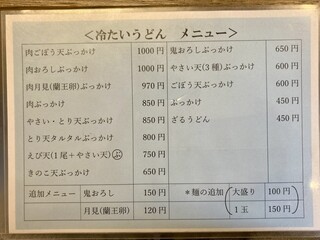 ＜冷たいうどん　メニュー＞
肉ごぼう天ぶっかけ 1000円
肉おろしぶっかけ 1000円
肉月見(蘭王卵)ぶっかけ 970円
肉ぶっかけ 850円
やさい・とり天ぶっかけ 850円
とり天タルタルぶっかけ 800円
えび天(1尾＋やさい天) ぶ 750円
きのこ天ぶっかけ 650円
鬼おろしぶっかけ 650円
やさい天(3種)ぶっかけ 600円
ごぼう天ぶっかけ 600円
ぶっかけ 450円
ざるうどん 450円
追加メニュー 鬼おろし 150円
月見(蘭王卵) 120円
＊麺の追加 大盛り 100円
1玉 150円